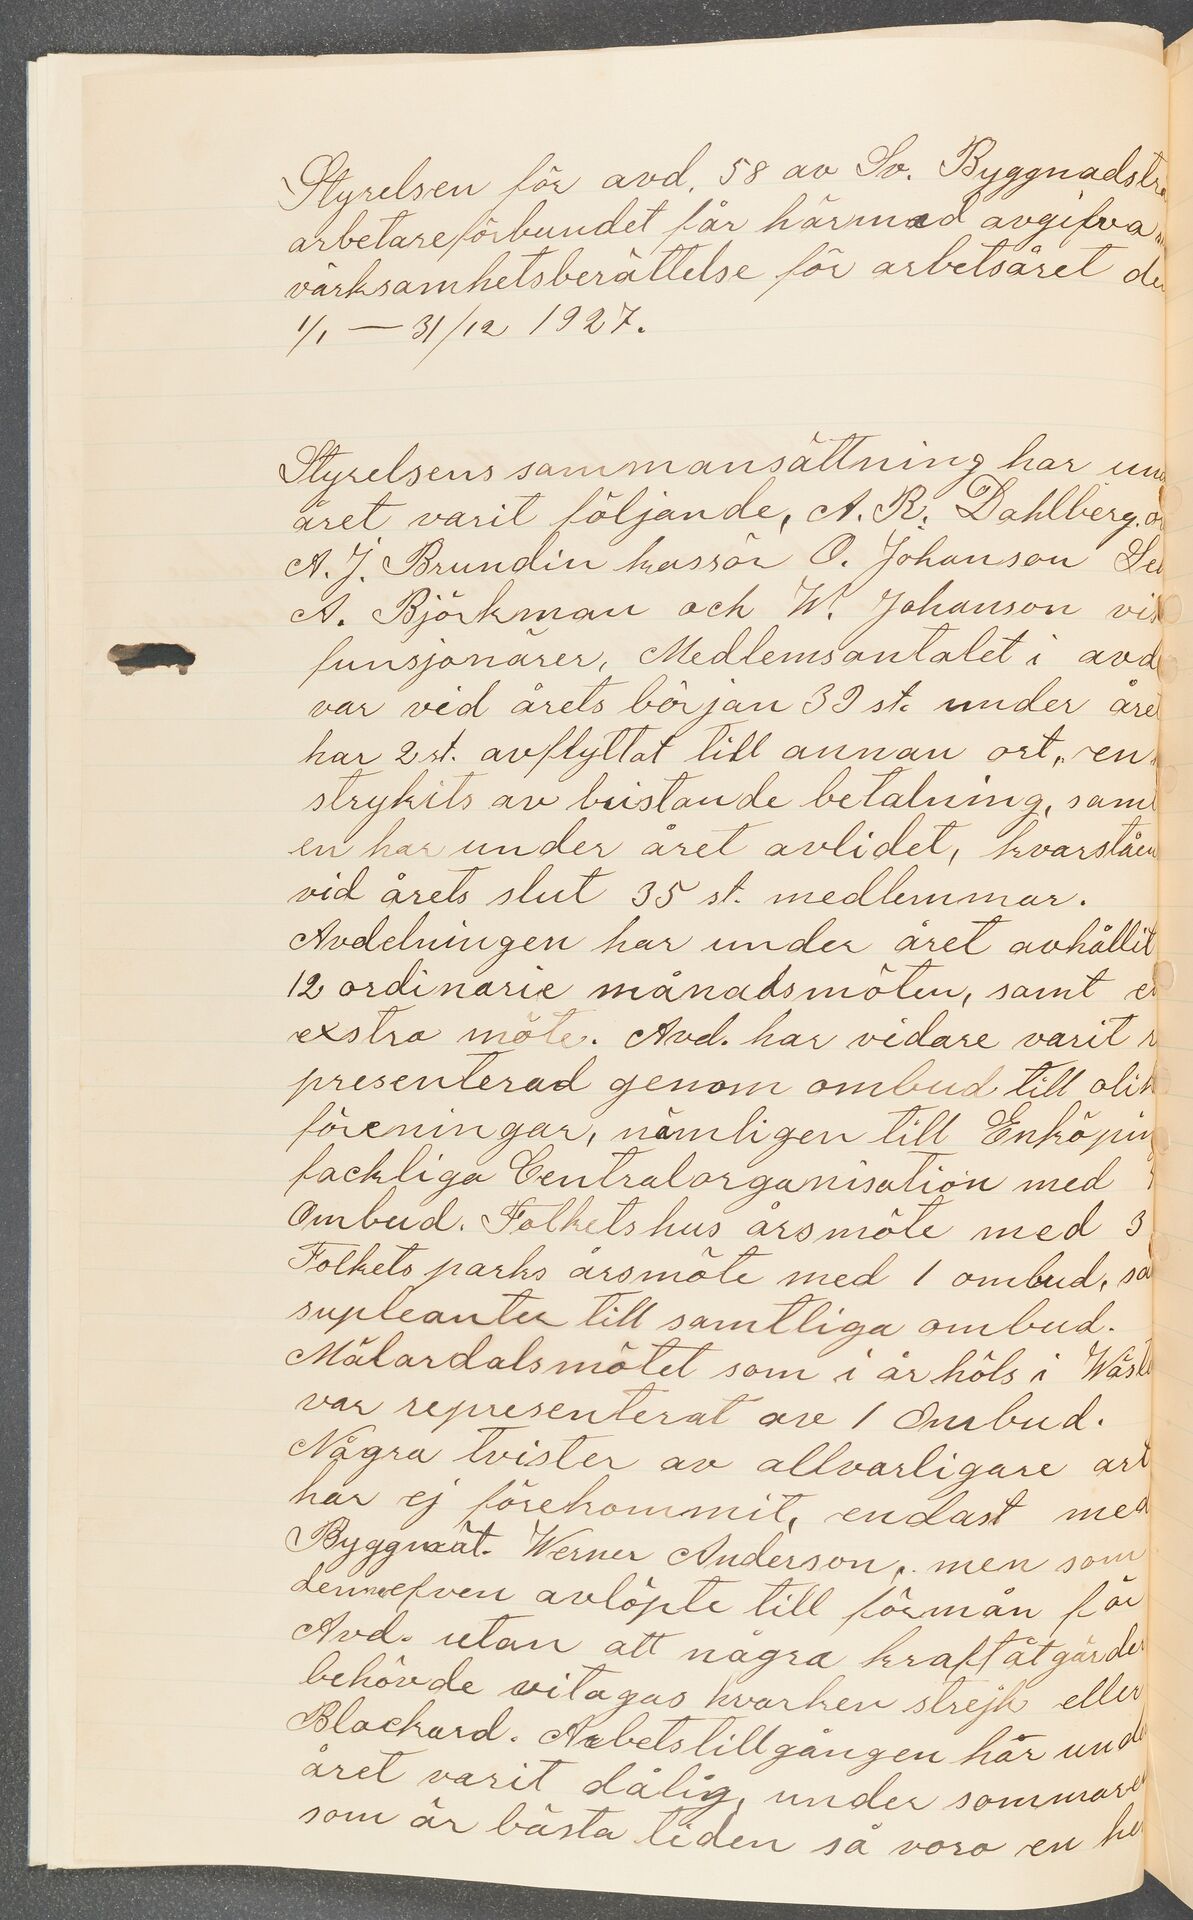 Styrelsen för avd. 58 av Sv. Byggnadsträ
arbetareförbundet får härmed avgifva
värksamhetsberättelse för arbetsåret de
1/1 — 31/12 1927.
Styrelsens sammansättning har un
året varit följande, A. R. Dahlberg. o
A. J. Brundin kassör O. Johanson Se
A. Björkman och W. Johanson vi
funsjonärer, Medlemsantalet i avd
var vid årets början 39 st. under åre
har 2 st. avflyttat till annan ort, en
strykits av bristande betalning, samt
en har under året avlidet, kvarståen
vid årets slut 35 st. medlemmar.
Avdelningen har under året avhållit
12 ordinarie månadsmöten, samt e
exstra möte. Avd. har vidare varit r
presenterad genom ombud till olik
föreningar, nämligen till Enköpin
fackliga Centralorganisation med
Ombud. Folketshus årsmöte med 3
Folkets parks årsmöte med 1 ombud, sa
supleanter till samtliga ombud.
Mälardalsmötet som i år höls i Wäst
var representerat ave 1 Ombud.
Några tvister av allvarligare art
har ej förekommit, endast med
Byggmät. Werner Anderson, men som
även avlöpte till förmån för
Avd. utan att några kraftåtgärder
behövde vitagas kvarken strejk eller
Blackard. Arbetstillgången här unde
året varit dålig, under sommare
som är bästa tiden så voro en he